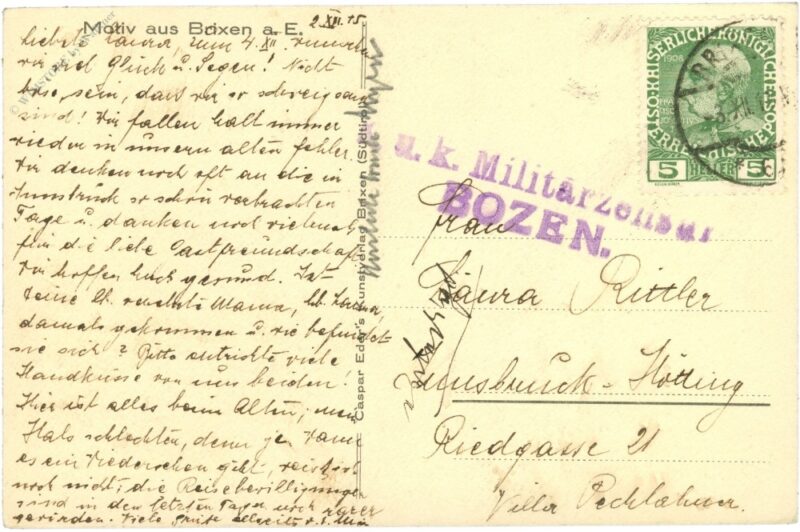 Motiv aus Brixen a. E.
2. XII. 15
Liebste Laura, zum 4. XII. wünschen
wir viel Glück u. Segen! Nicht
böse sein, dass wir so schweigsam
sind! Wir fallen halt immer
wieder in unseren alten Fehler.
Wir denken noch oft an die in
Innsbruck so schön verbrachten
Tage u. danken noch vielmals
für die liebe Gastfreundschaft.
Wir hoffen Euch gesund. Ist
Deine lb. verehrte Mama, lb. Laura,
damals gekommen u. wie befindet
sie sich? Bitte entrichte viele
Handküsse von uns beiden!
Hier ist alles beim Alten; nur
Hals schlechten, denn je. Wann
es ein Wiedersehen gibt, weiss ich
noch nicht, die Reisebewilligungen
sind in den letzten Tagen noch rarer
geworden. Viele Grüße allerseits
Caspar Eder's Kunstverlag Brixen (Südtirol)
u. k. Militärzensur
BOZEN.
KAISERLICHE KÖNIGLICHE
ÖSTERREICHISCHE POST
1908
5 HELLER 5
Frau
Laura Rittler
Innsbruck-Hötting
Riedgasse 21
Villa Pechlahner.